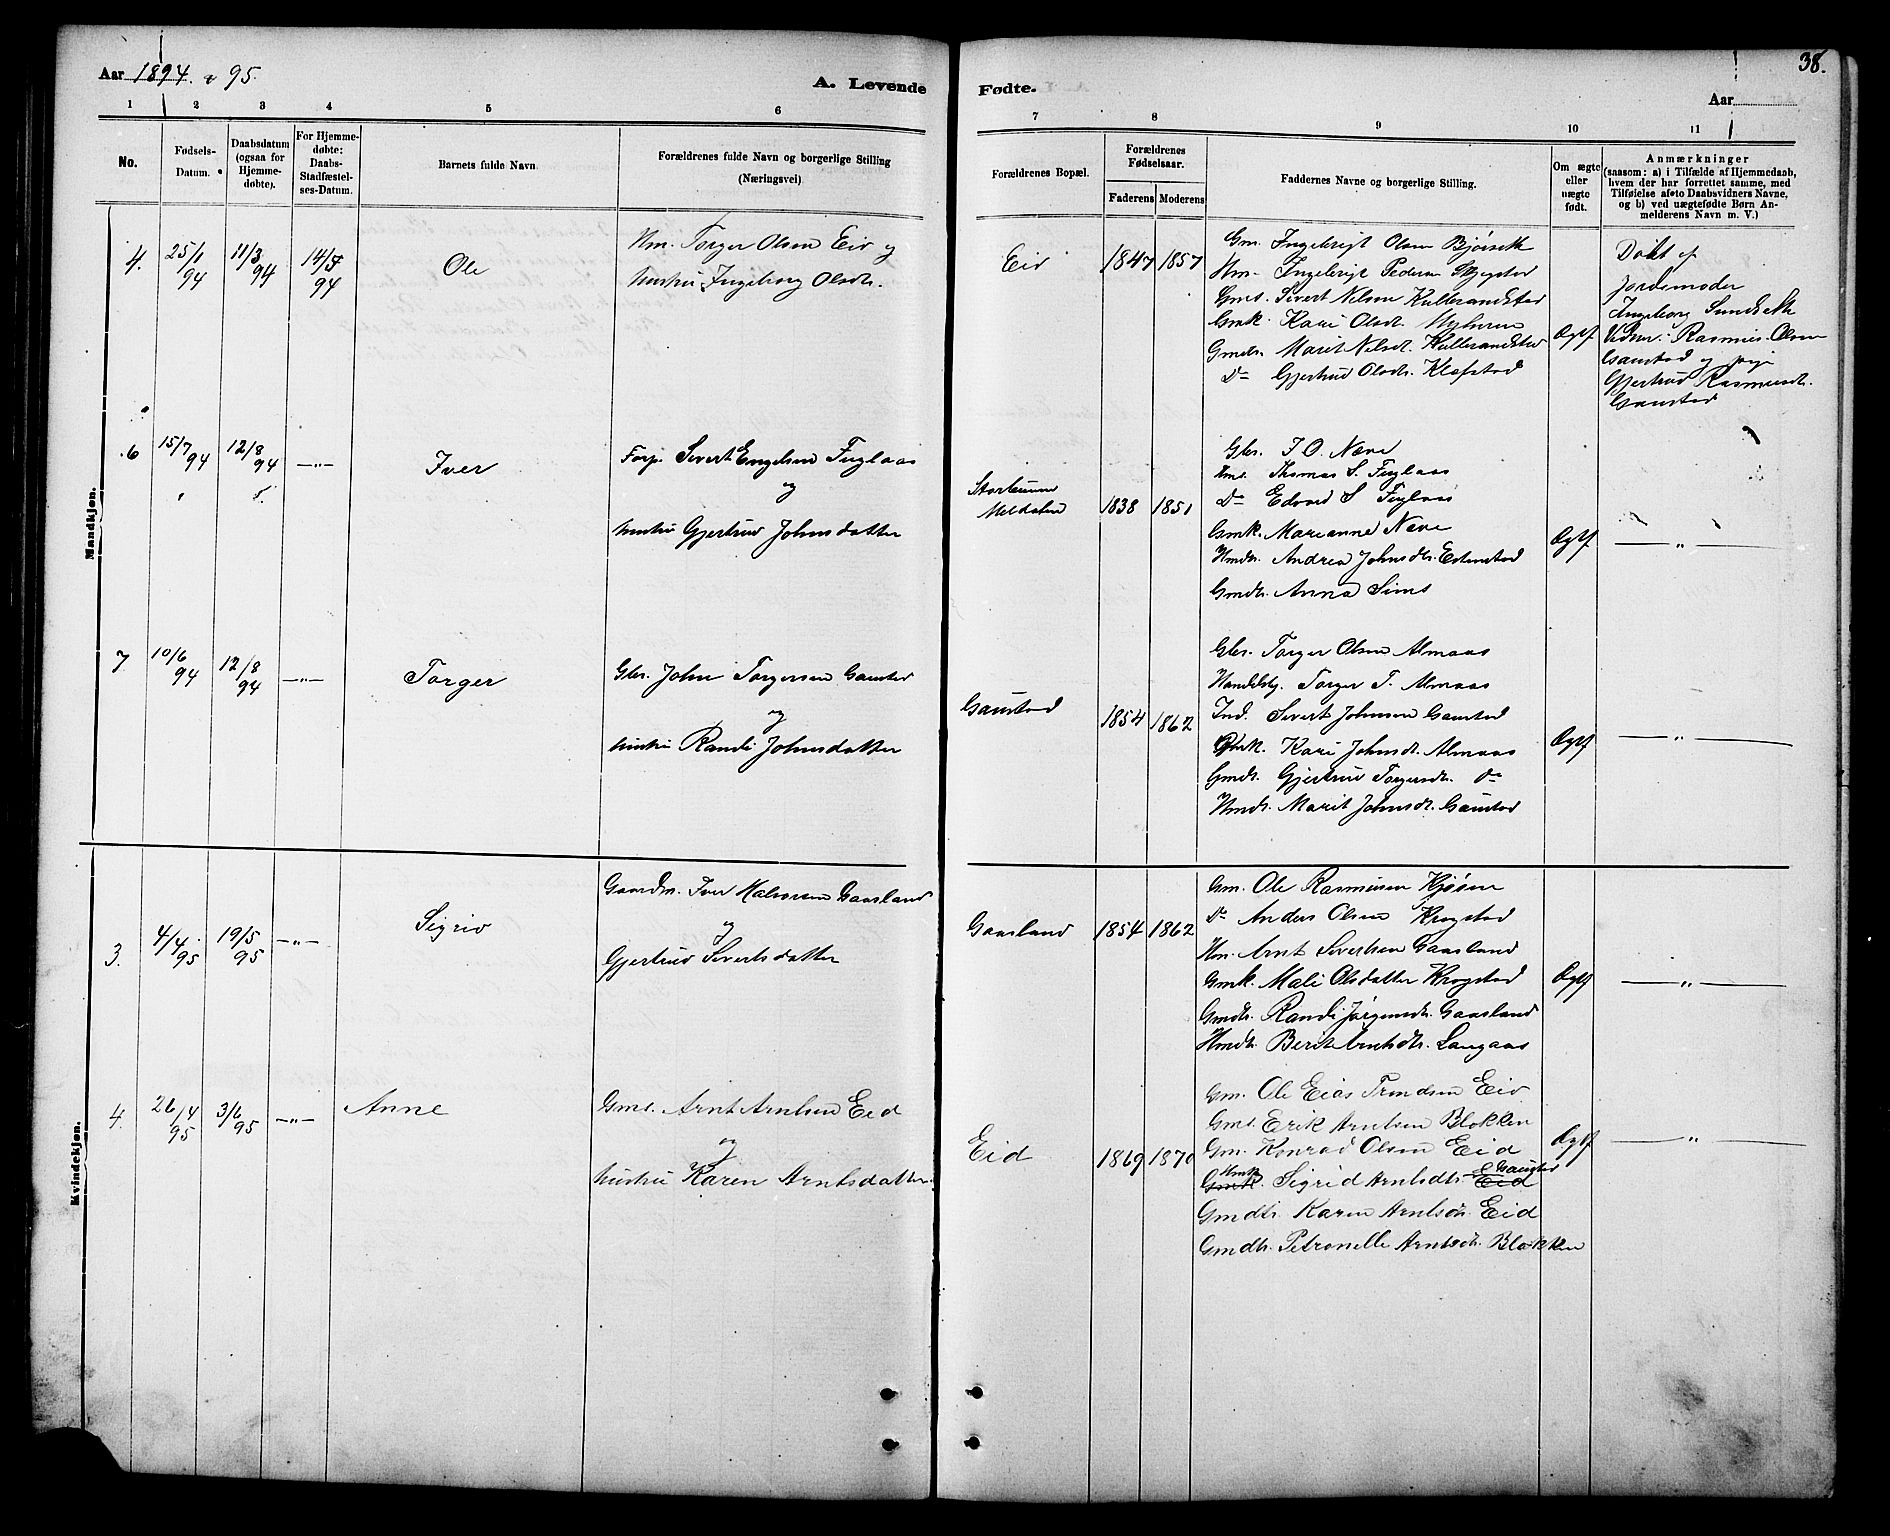 38.
Aar 1894. & 95.
A. Levende Fødte.
Aar
1 2 3 4 5 6 7 8 9 10 11
No.
Fødsels-Datum.
Daabsdatum (ogsaa for Hjemmedøbte).
For Hjemmedøbte: Daabs-Stadfæstelses-Datum.
Barnets fulde Navn.
Forældrenes fulde Navn og borgerlige Stilling (Næringsvei)
Forældrenes Bopæl.
Forældrenes Fødselsaar.
Faderens Moderens
Faddernes Navne og borgerlige Stilling.
Om ægte eller uægte født.
Anmærkninger
(saasom: a) i Tilfælde af Hjemmedaab, hvem der har forrettet samme, med Tilføielse af to Daabsvidners Navne, og b) ved uægtefødte Børn Anmelderens Navn m. V.)
Mandkjøn.
4. 25/1 94 11/3 94 14/5 94 Ole
Hm. Torger Olsen Eid og
hustru Ingeborg Olsdtr.
Eid 1847 1857
Gm. Ingebrigt Olsen Bjørseth
Hm. Ingebrigt Pedersen
Gms. Sivert Nilsen Kullerandstad
Gmk. Kari Olsdt.
Gmdtr. Marit Nilsdt. Kullerandstad
Do Gjertrud Olsdt. Klefstad
Ægtf
Døbt af
Jordemoder
Ingeborg Sundseth
Vidner: Rasmus Olsen
Gaustad og pige
Gjertrud Rasmusdt.
Gaustad
6 15/7 94 12/8 94 —"— Iver
Forp. Sivert Engelsen Fuglaas
og
hustru Gjertrud Johnsdatter
Meldalen 1838 1851
Gbr. I. O. Næve
Hms. Thomas S. Fuglaas
Do Edvard S. Fuglaas
Gmk. Marianne Næve
Hmdt. Andrea Johnsdt. Estenstad
Gmdtr. Anna Sims
Ægtf —"—
7 10/6 94 12/8 94 —"— Torger
Gbr. John Torgersen Gaustad
og
hustru Randi Johnsdatter
Gaustad 1854 1862
Gbr. Torger Olsen Almaas
Handelsbj. Torger T. Almaas
Ind. Sivert Johnsen Gaustad
Gmk. Kari Johnsdt. Almaas
Gmdt. Gjertrud Torgersdt. Do
Hmdt. Marit Johnsdt. Gaustad
Ægtf —"—
Kvindekjøn.
3. 4/4 95 19/5 95 —"— Sigrid
Gaardm. Iver Halvorsen Gaasland
og
Gjertrud Sivertsdatter
Gaasland 1854 1862
Gm. Ole Rasmussen Kjøsen
Do Anders Olsen Krogstad
Hm. Arnt Sivertsen Gaasland
Gmk. Mali Olsdatter Krogstad
Gmdtr. Randi Jørgensdt. Gaasland
Hmdt. Berit Arntsdtr. Langaas
Ægtf —"—
4. 26/4 95 3/6 95 —"— Anne
Gms. Arnt Arntsen Eid
og
hustru Karen Arntsdatter
Eid 1869 1870
Gm. Ole Eias Trondsen Eid
Gms. Erik Arntsen Blokken
Gm. Konrad Olsen Eid
Hmk Gaustad
Gmk. Sigrid Arntsdtr. Eid
Gmdtr. Karen Arntsdt. Eid
Gmdtr. Petronelle Arntsdt. Blokken
Ægtf —"—